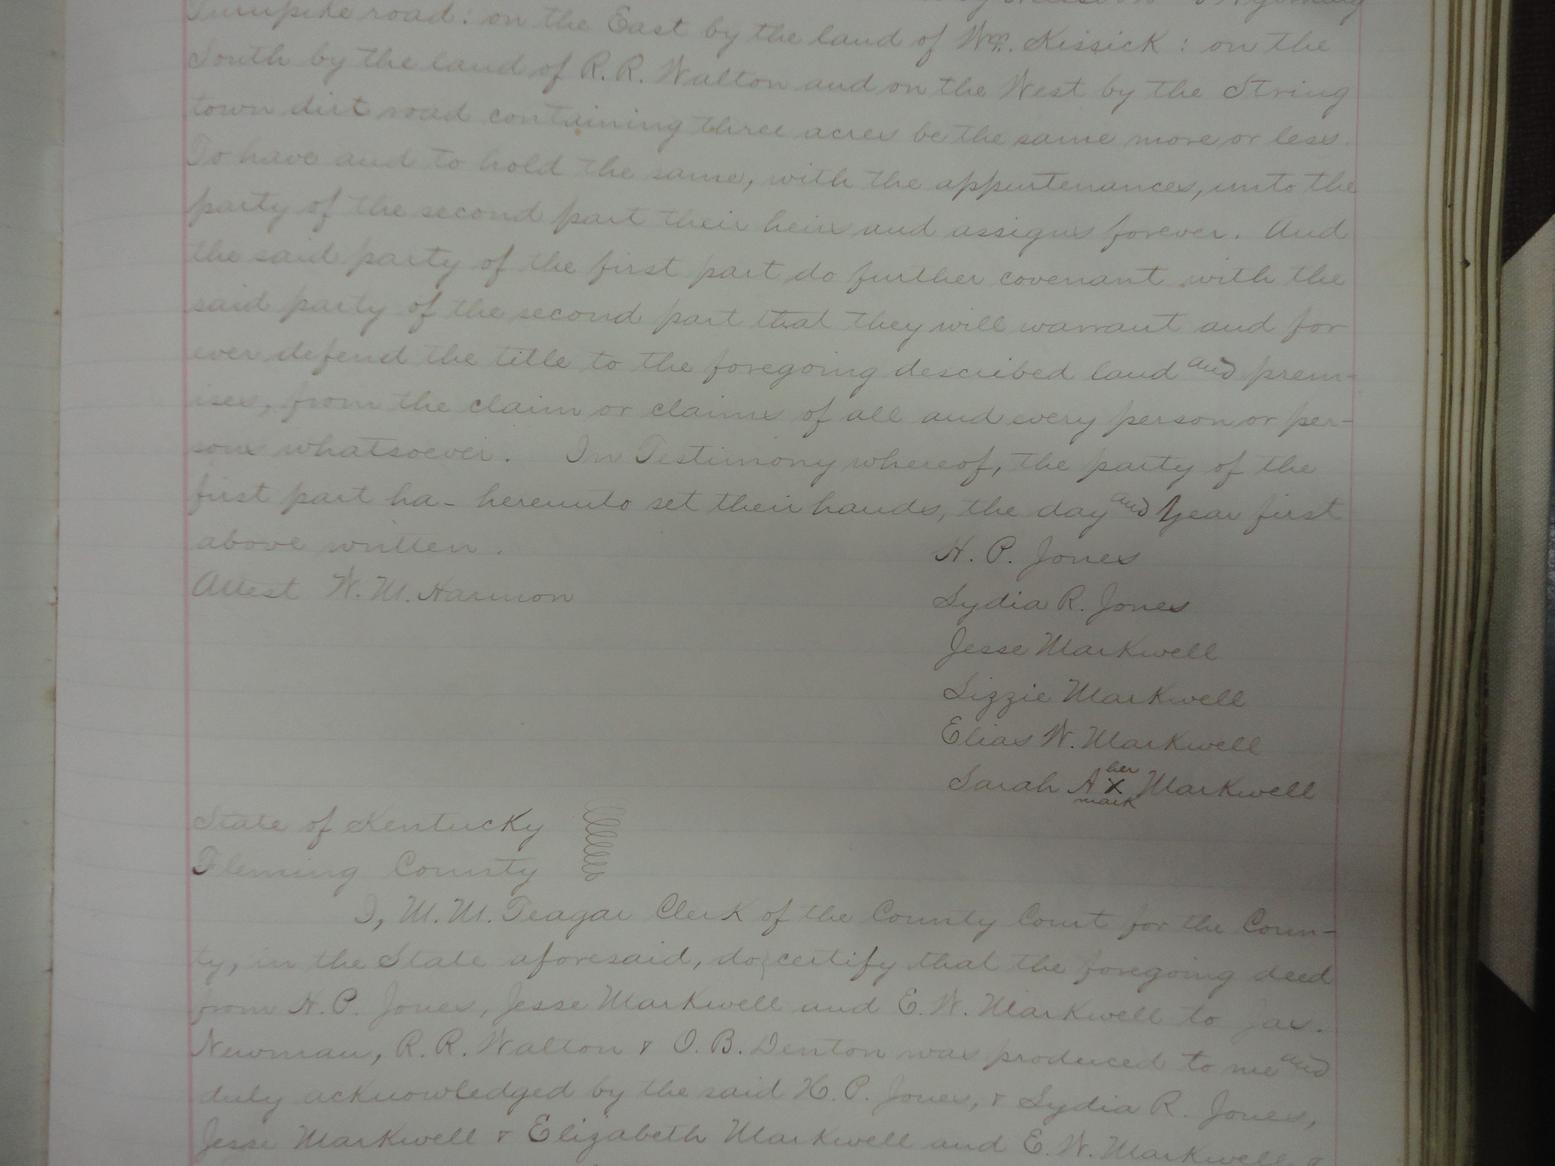 Turnpike road: on the East by the land of Wm. Kissick: on the
South by the land of R. R. Walton and on the West by the String
town dirt road containing three acres be the same more or less.
To have and to hold the same, with the appurtenances, unto the
party of the second part their heirs and assigns forever. And
the said party of the first part do further covenant with the
said party of the second part that they will warrant and for
ever defend the title to the foregoing described land and prem-
ises, from the claim or claims of all and every person or per-
sons whatsoever. In Testimony whereof, the party of the
first part ha- hereunto set their hands, the day and year first
above written.
H. P. Jones
Attest W. M. Harmon
Lydia R. Jones
Jesse Markwell
Lizzie Markwell
Elias W. Markwell
Sarah A her X mark Markwell
State of Kentucky
Fleming County
I, M. M. Teagar Clerk of the County Court for the Coun-
ty, in the State aforesaid, do certify that the foregoing deed
from H. P. Jones, Jesse Markwell and E. W. Markwell to Jas.
Newman, R. R. Walton & O. B. Denton was produced to me and
duly acknowledged by the said H. P. Jones, & Lydia R. Jones,
Jesse Markwell & Elizabeth Markwell and E. W. Markwell